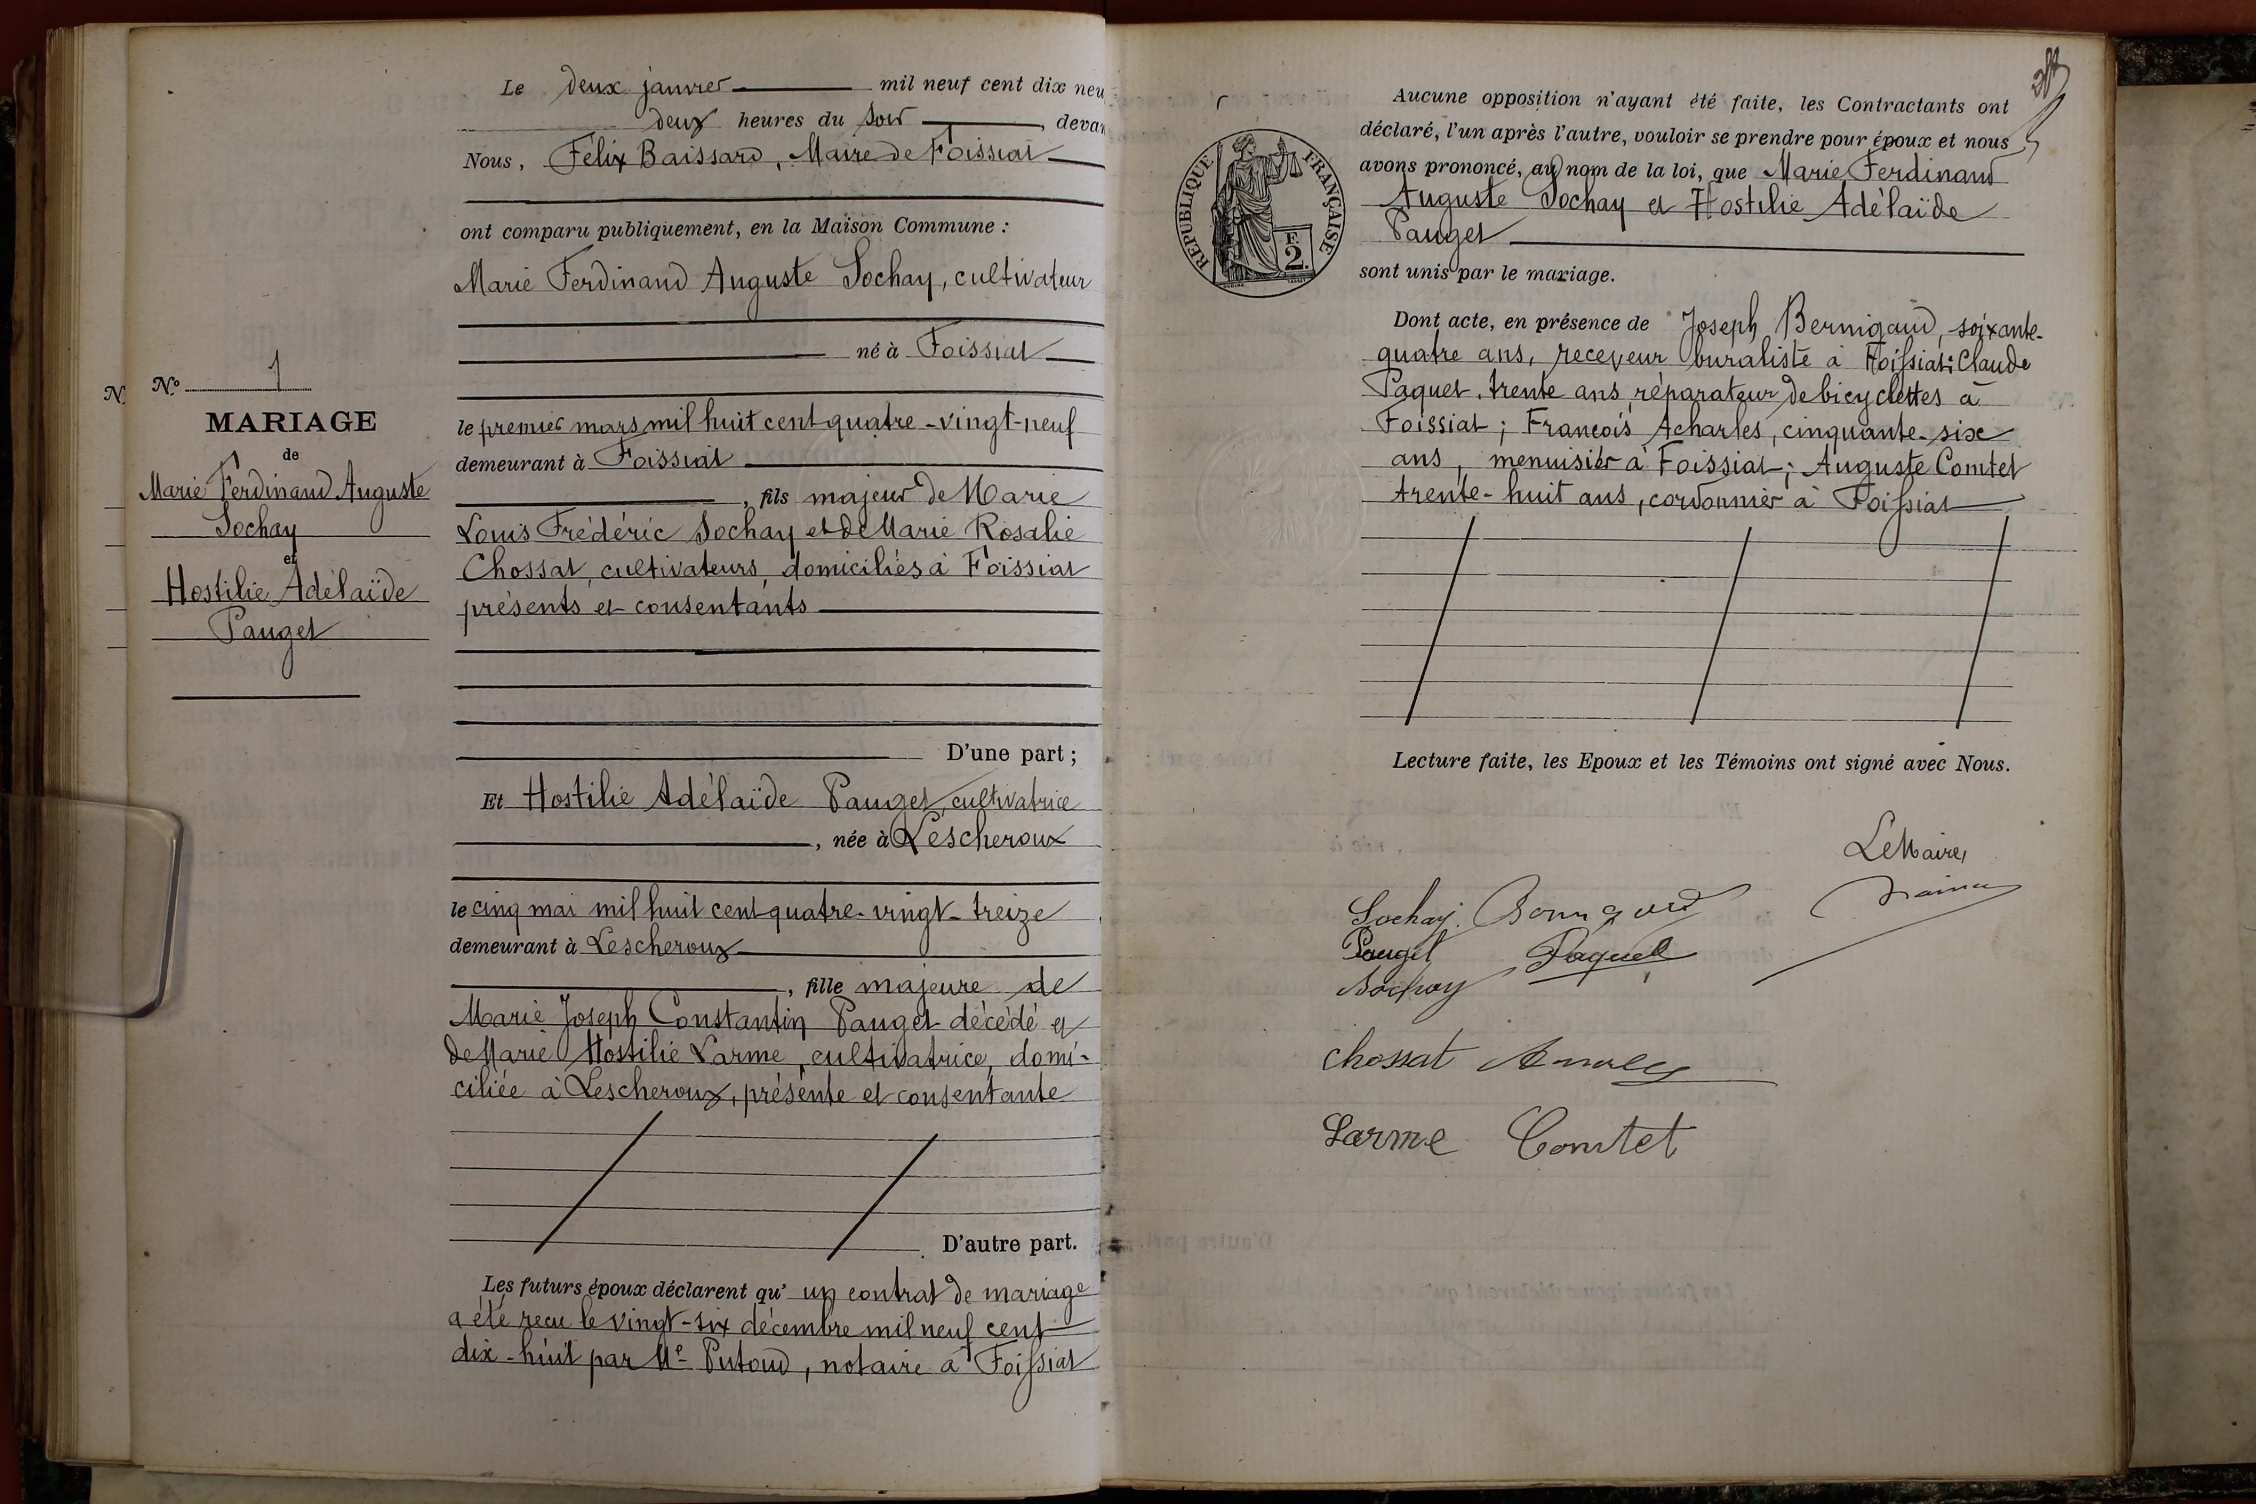 N
Nº 1
MARIAGE
de
Marie Ferdinand Auguste
Sochay
et
Hostilie Adélaïde
Pauget
Le deux janvier mil neuf cent dix neu
deux heures du soir, devan
Nous, Félix Baissard, Maire de Foissiat
ont comparu publiquement, en la Maison Commune :
Marie Ferdinand Auguste Sochay, cultivateur
né à Foissiat
le premier mars mil huit cent quatre-vingt-neuf
demeurant à Foissiat
, fils majeur de Marie
Louis Frédéric Sochay et de Marie Rosalie
Chossat, cultivateurs, domiciliés à Foissiat
présents et consentants
D'une part ;
Et Hostilie Adélaïde Pauget, cultivatrice
, née à Lescheroux
le cinq mai mil huit cent quatre-vingt-treize
demeurant à Lescheroux
, fille majeure de
Marie Joseph Constantin Pauget décédé et
de Marie Hostilie Larme, cultivatrice, domi-
ciliée à Lescheroux, présente et consentante
D'autre part.
Les futurs époux déclarent qu' un contrat de mariage
a été recu le vingt-six décembre mil neuf cent
dix-huit par Me Putoud, notaire à Foissiat
RÉPUBLIQUE FRANÇAISE
F.
2.
Aucune opposition n'ayant été faite, les Contractants ont
déclaré, l'un après l'autre, vouloir se prendre pour époux et nous
avons prononcé, au nom de la loi, que Marie Ferdinand
Auguste Sochay et Hostilie Adélaïde
Pauget
sont unis par le mariage.
Dont acte, en présence de Joseph Bernigaud, soixante-
quatre ans, receveur buraliste à Foissiat; Claude
Paquet, trente ans, réparateur de bicyclettes à
Foissiat; François Acharles, cinquante-six
ans, menuisier à Foissiat; Auguste Comtet
trente-huit ans, cordonnier à Foissiat
Lecture faite, les Epoux et les Témoins ont signé avec Nous.
Le Maire,
Sochay
Pauget Paquet
Sochay
Chossat
Larme Comtet